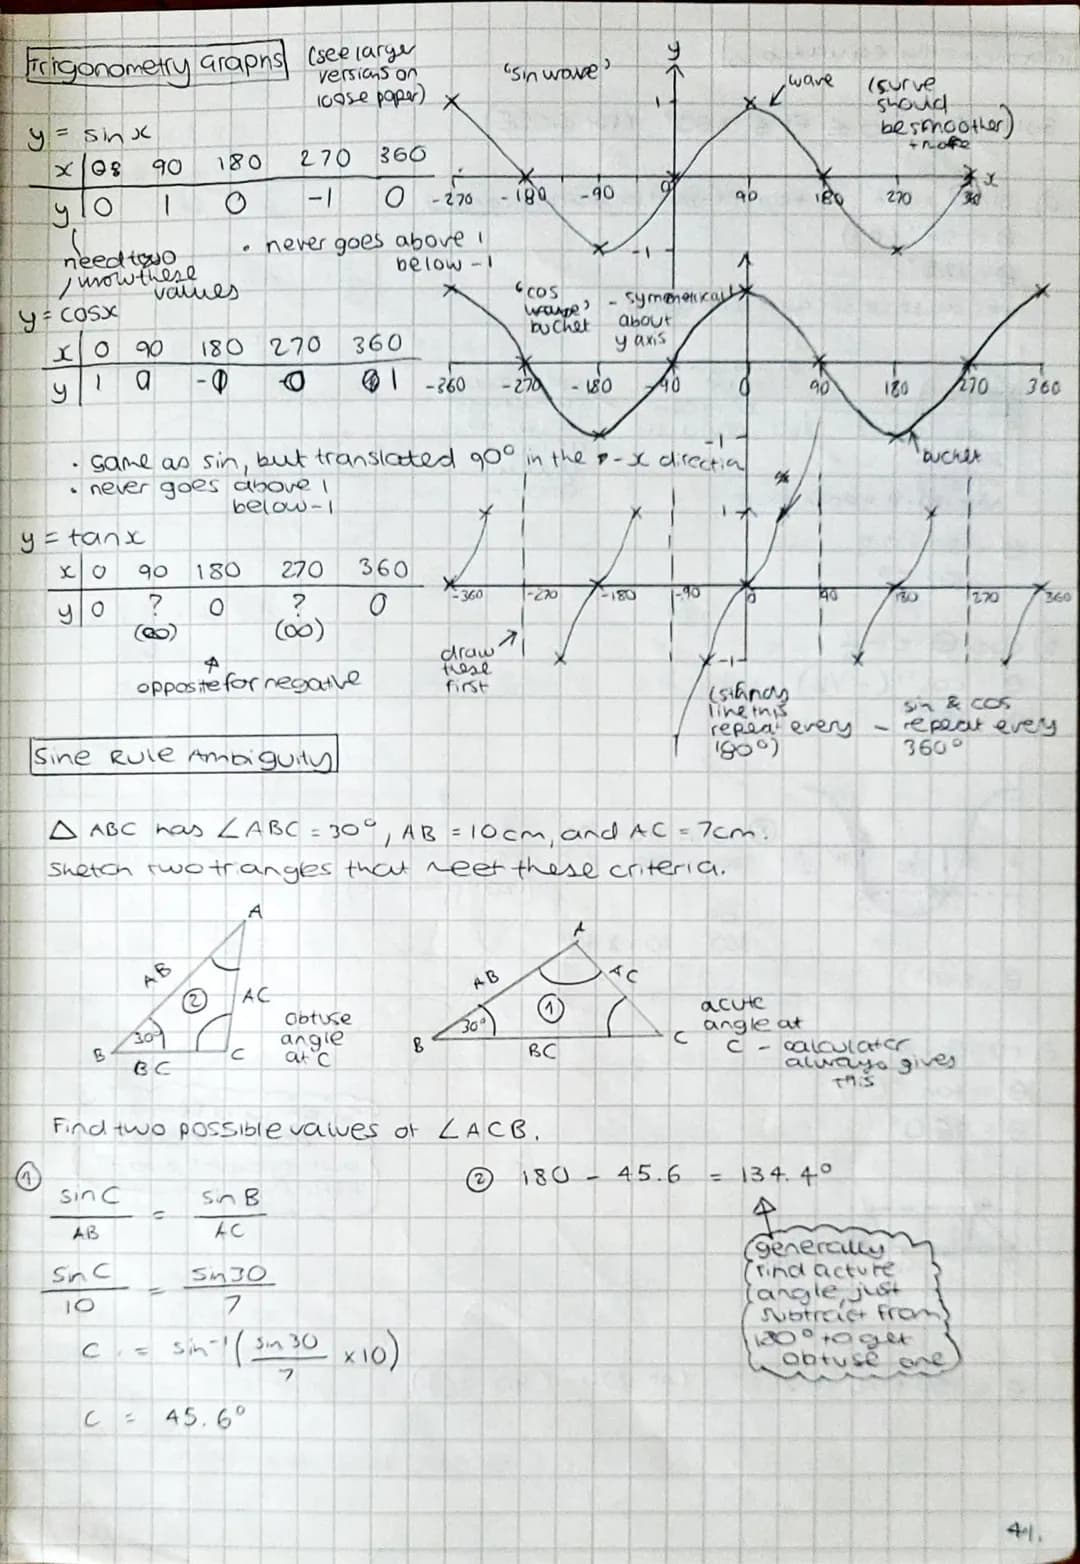 Trigonometry Graphs
(see larger
versions on
loose paper)
"sin wave"
y
wave
(curve
should
be smoother)
1
y = sin x
x 0 90 180 270 360
y 0 1 0 -1 0
-270 -180 -90 0 90 180 270 360 x
-1
need to
know these
values
• never goes above 1
below -1
y = cosx
"cos
wave"
bucket
- symmetrical
about
y axis
x 0 90 180 270 360
y 1 0 -1 0 1
-360 -270 -180 -90 0 90 180 270 360
-1
bucket
• same as sin, but translated 90° in the -x direction
• never goes above 1
below -1
y = tanx
x 0 90 180 270 360
y 0 ? 0 ? 0
(∞) (∞)
opposite for negative
1
-360 -270 -180 -90 0 90 180 270 360
-1
draw
these
first
line this
repeat every
180°)
- sin & cos
repeat every
360°
Sine Rule Ambiguity
△ ABC has ∠ABC = 30°, AB = 10cm, and AC = 7cm.
Sketch two triangles that meet these criteria.
A
AB
② AC
30°
B C
BC
obtuse
angle
at C
A
AB AC
①
30°
B C
BC
acute
angle at
C - calculator
always gives
this
Find two possible values of ∠ACB.
①
sin C / AB = sin B / AC
sin C / 10 = sin 30 / 7
C = sin⁻¹( sin 30 / 7 × 10)
C = 45.6°
② 180 - 45.6 = 134.4°
generally
find acture
angle, just
subtract from
180° to get
obtuse one
41.